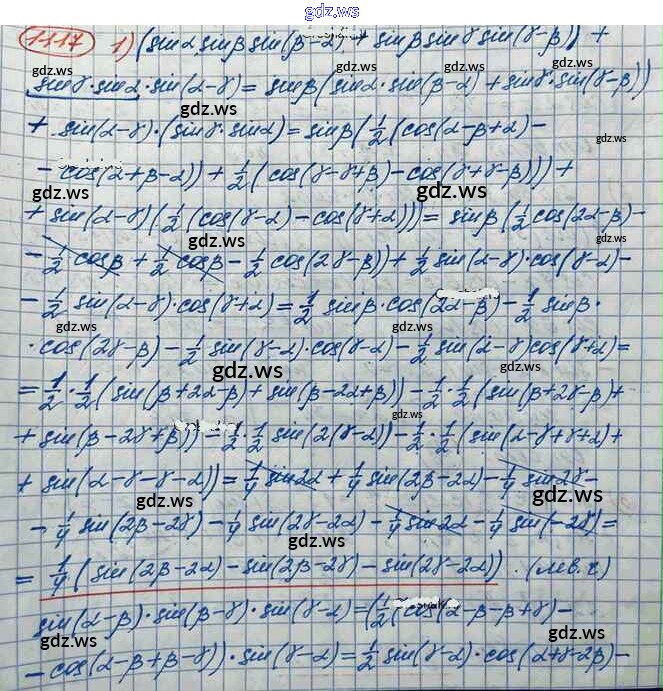 gdz.ws
11.17 1) (sinα sinβ sin(β-α) + sinβ sinγ sin(γ-β)) +
gdz.ws
sinγ·sinα·sin(α-γ) = sinβ(sinα·sin(β-α) + sinγ·sin(γ-β))
+ sin(α-γ)·(sinγ·sinα) = sinβ(1/2(cos(α-β+α) -
- cos(α+β-α)) + 1/2(cos(γ-γ+β) - cos(γ+γ-β))) +
+ sin(α-γ)(1/2(cos(γ-α) - cos(γ+α))) = sinβ(1/2cos(2α-β) -
- 1/2 cosβ + 1/2 cosβ - 1/2 cos(2γ-β)) + 1/2 sin(α-γ)·cos(γ-α) -
- 1/2 sin(α-γ)·cos(γ+α) = 1/2 sinβ·cos(2α-β) - 1/2 sinβ·
·cos(2γ-β) - 1/2 sin(γ-α)·cos(γ-α) - 1/2 sin(α-γ)cos(γ+α) =
= 1/2·1/2(sin(β+2α-β) + sin(β-2α+β)) - 1/2·1/2(sin(β+2γ-β) +
+ sin(β-2γ+β)) - 1/2·1/2 sin(2(γ-α)) - 1/2·1/2(sin(α-γ+γ+α) +
+ sin(α-γ-γ-α)) = 1/4 sin2α + 1/4 sin(2β-2α) - 1/4 sin2γ -
- 1/4 sin(2β-2γ) - 1/4 sin(2γ-2α) - 1/4 sin2α - 1/4 sin(-2γ) =
= 1/4(sin(2β-2α) - sin(2β-2γ) - sin(2γ-2α)). (лев.ч)
sin(α-β)·sin(β-γ)·sin(γ-α) = (1/2(cos(α-β-β+γ) -
- cos(α-β+β-γ))·sin(γ-α) = 1/2 sin(γ-α)·cos(α+γ-2β) -